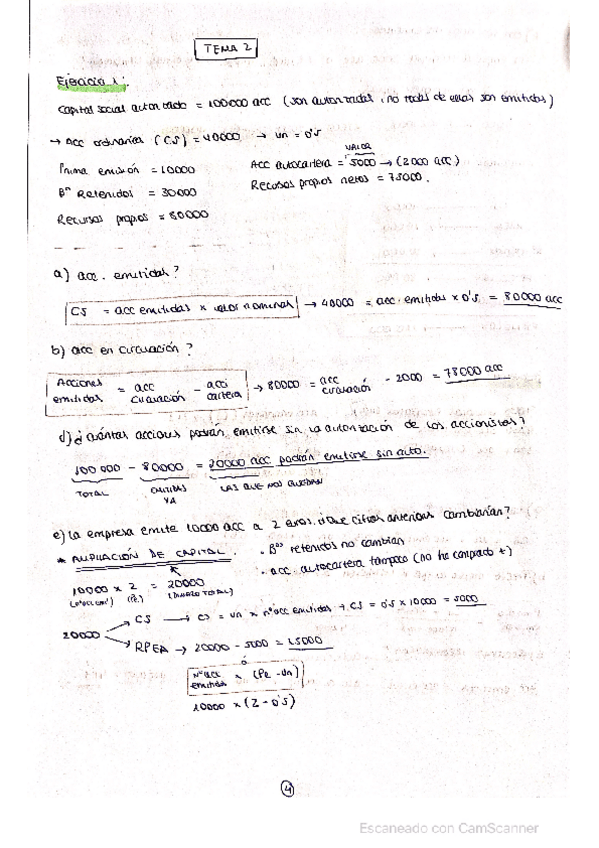 TEMA 2
Ejercicio 1:
Capital social autorizado = 100000 acc (son autorizadas, no todas de ellas son emitidas)
→ acc ordinarias (CS) = 40000 → Vn = 0'5
VALOR
Prima emisión = 10000 Acc autocartera = 5000 → (2000 acc)
Bº Retenidos = 30000 Recursos propios netos = 75000.
Recursos propios = 80000
a) acc. emitidas?
CS = acc emitidas x valor nominal → 40000 = acc. emitidas x 0'5 = 80000 acc
b) acc en circulación?
Acciones emitidas = acc circulación - acc cartera → 80000 = acc circulación - 2000 = 78000 acc
d) ¿Cuántas acciones podrán emitirse sin la autorización de los accionistas?
100 000 - 80000 = 20000 acc podrán emitirse sin auto.
TOTAL EMITIDAS YA LAS QUE NOS QUEDAN
e) La empresa emite 10000 acc a 2 euros. ¿Que cifras anteriores cambiarían?
* AMPLIACIÓN DE CAPITAL. · Bºs retenidos no cambian
· acc. autocartera tampoco (no ha comprado +)
10000 x 2 = 20000
(Pe.) (DINERO TOTAL)
CS → CS = Vn x nº acc emitidas → CS = 0'5 x 10000 = 5000
20000
RPEA → 20000 - 5000 = 15000
ó
Nº acc emitidas x (Pe - Vn)
10000 x (2 - 0'5)
4
Escaneado con CamScanner